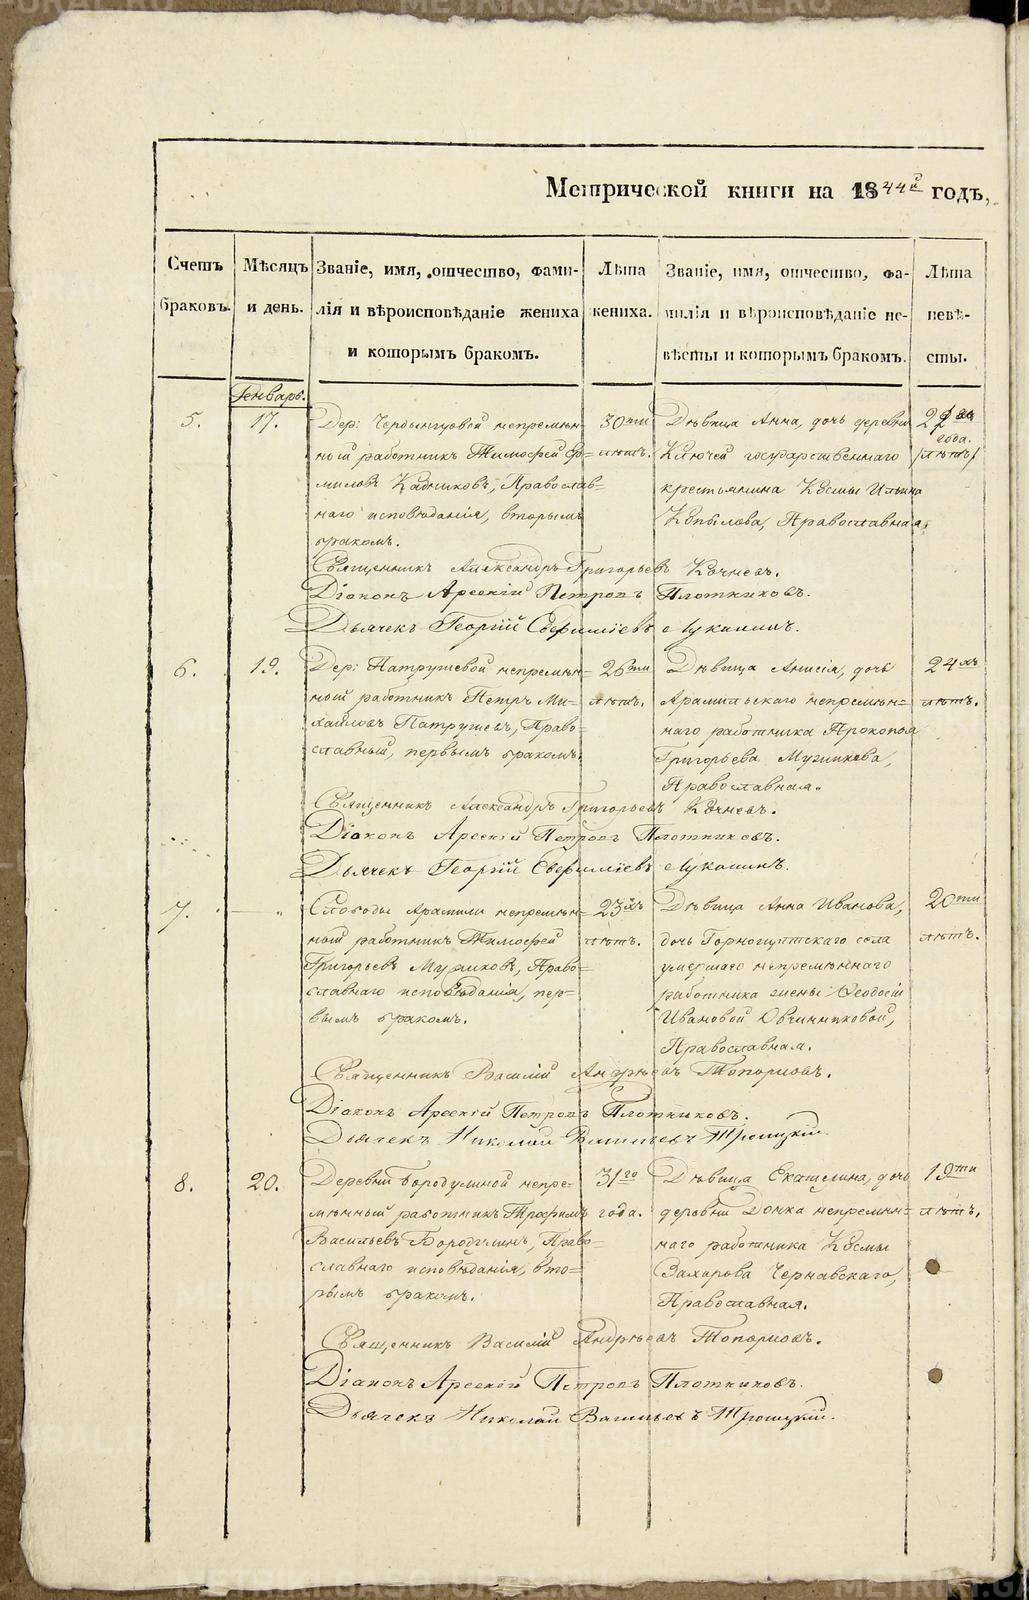 Метрической книги на 1844й годъ,
Счетъ браковъ.
Мѣсяцъ и день.
Званіе, имя, отчество, фами-
лія и вѣроисповѣданіе жениха
и которымъ бракомъ.
Лѣта
жениха.
Званіе, имя, отчество, фа-
милія и вѣроисповѣданіе не-
вѣсты и которымъ бракомъ.
Лѣта
невѣ-
сты.
Генварь.
5.
17.
Дер: непремѣн-
ный работникъ Тимофей Ер-
миловъ Кадниковъ, Православ-
наго исповѣданія, вторымъ
бракомъ.
30ти
лѣтъ.
Дѣвица Анна, дочь деревни
Ключей государственнаго
крестьянина Козмы Ильина
Копылова, Православная,
года.
/лѣтъ/
Священникъ Александръ Григорьевъ Кочневъ.
Діаконъ Арсеній Петровъ Плотниковъ.
Дьячекъ Георгій Евфиміевъ Луканинъ.
6.
19.
Дер: Патрушевой непремѣн-
ный работникъ Петръ Ми-
хайловъ Патрушевъ, Право-
славный, первымъ бракомъ.
26ти
лѣтъ.
Дѣвица Анисія, дочь
Арамильскаго непремѣн-
наго работника Прокопья
Григорьева Мугинкова,
Православная.
24хъ
лѣтъ.
Священникъ Александръ Григорьевъ Кочневъ.
Діаконъ Арсеній Петровъ Плотниковъ.
Дьячекъ Георгій Евфиміевъ Луканинъ.
7.
— "
Слободы Арамили непремѣн-
ный работникъ Тимофей
Григорьевъ Православнаго исповѣданія, пер-
вымъ бракомъ.
23хъ
лѣтъ.
Дѣвица Анна Иванова,
дочь Горнощитскаго села
умершаго непремѣннаго
работника жены Ѳеодосіи
Ивановой Овчинниковой,
Православная.
20ти
лѣтъ.
Священникъ Василій Андреевъ Топорковъ.
Діаконъ Арсеній Петровъ Плотниковъ.
Дьячекъ Николай Васильевъ Троицкій.
8.
20.
Деревни Бородулиной непре-
мѣнный работникъ Трофимъ
Васильевъ Бородулинъ, Право-
славнаго исповѣданія, вто-
рымъ бракомъ.
31го
года.
Дѣвица Екатерина, дочь
деревни непремѣн-
наго работника Козмы
Захарова Чернавскаго,
Православная.
19ти
лѣтъ.
Священникъ Василій Андреевъ Топорковъ.
Діаконъ Арсеній Петровъ Плотниковъ.
Дьячекъ Николай Васильевъ Троицкій.
METRIKI.GASO-URAL.RU